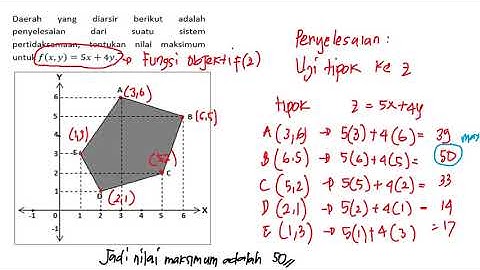 Daerah yang diarsir berikut adalah
penyelesaian dari suatu sistem
pertidaksamaan, tentukan nilai maksimum
untuk f(x,y) = 5x + 4y. → Fungsi objektif (z)
Y
6
5
4
3
2
1
-1 0 1 2 3 4 5 6 X
-1
A (3,6)
B (6,5)
(1,3) E
(5,2) C
D (2,1)
Penyelesaian :
Uji titik pojok ke z
titik pojok z = 5x+4y
A (3,6) → 5(3)+4(6) = 39
B (6,5) → 5(6)+4(5) = 50 max
C (5,2) → 5(5)+4(2) = 33
D (2,1) → 5(2)+4(1) = 14
E (1,3) → 5(1)+4(3) = 17
Jadi nilai maksimum adalah 50